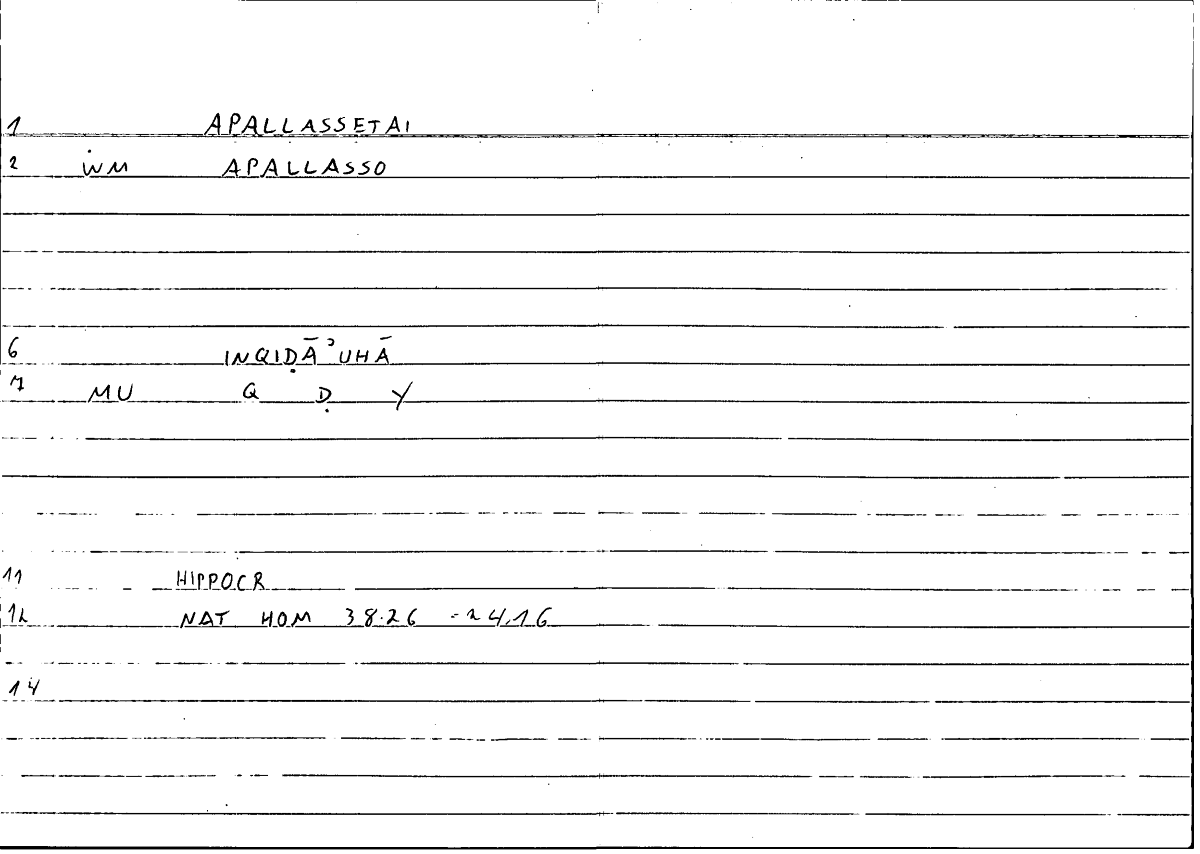 1 APALLASSETAI
2 ẇM APALLASSO
6 INQIḌĀʾUHĀ
7 MU Q Ḍ Y
11 HIPPOCR
12 NAT HOM 38.26 - 24.16
14